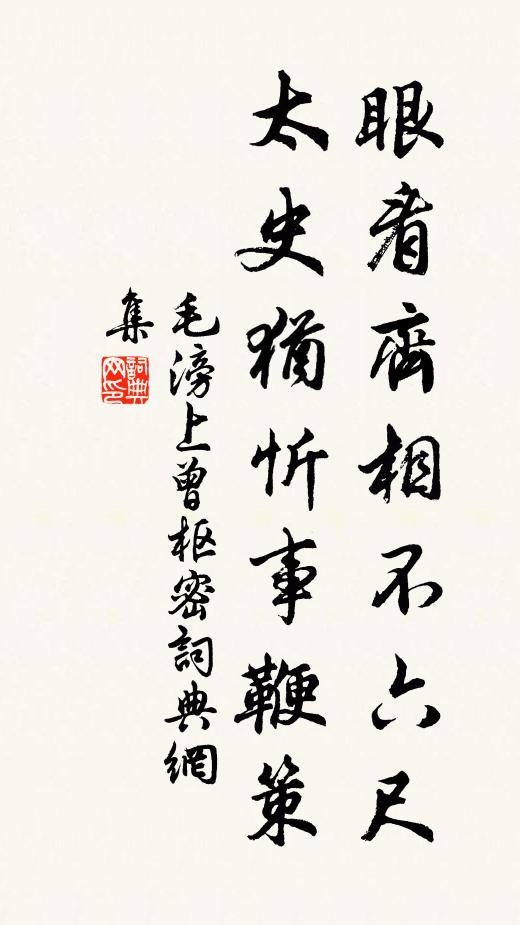 眼看齊相不六尺
太史猶忻事鞭策
毛滂上曾枢密詞典網
集
詞典網印